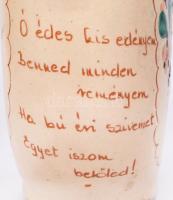 Ó édes kis edényem
Benned minden
reményem
Ha bú éri szivemet
Egyet iszom
belőled!